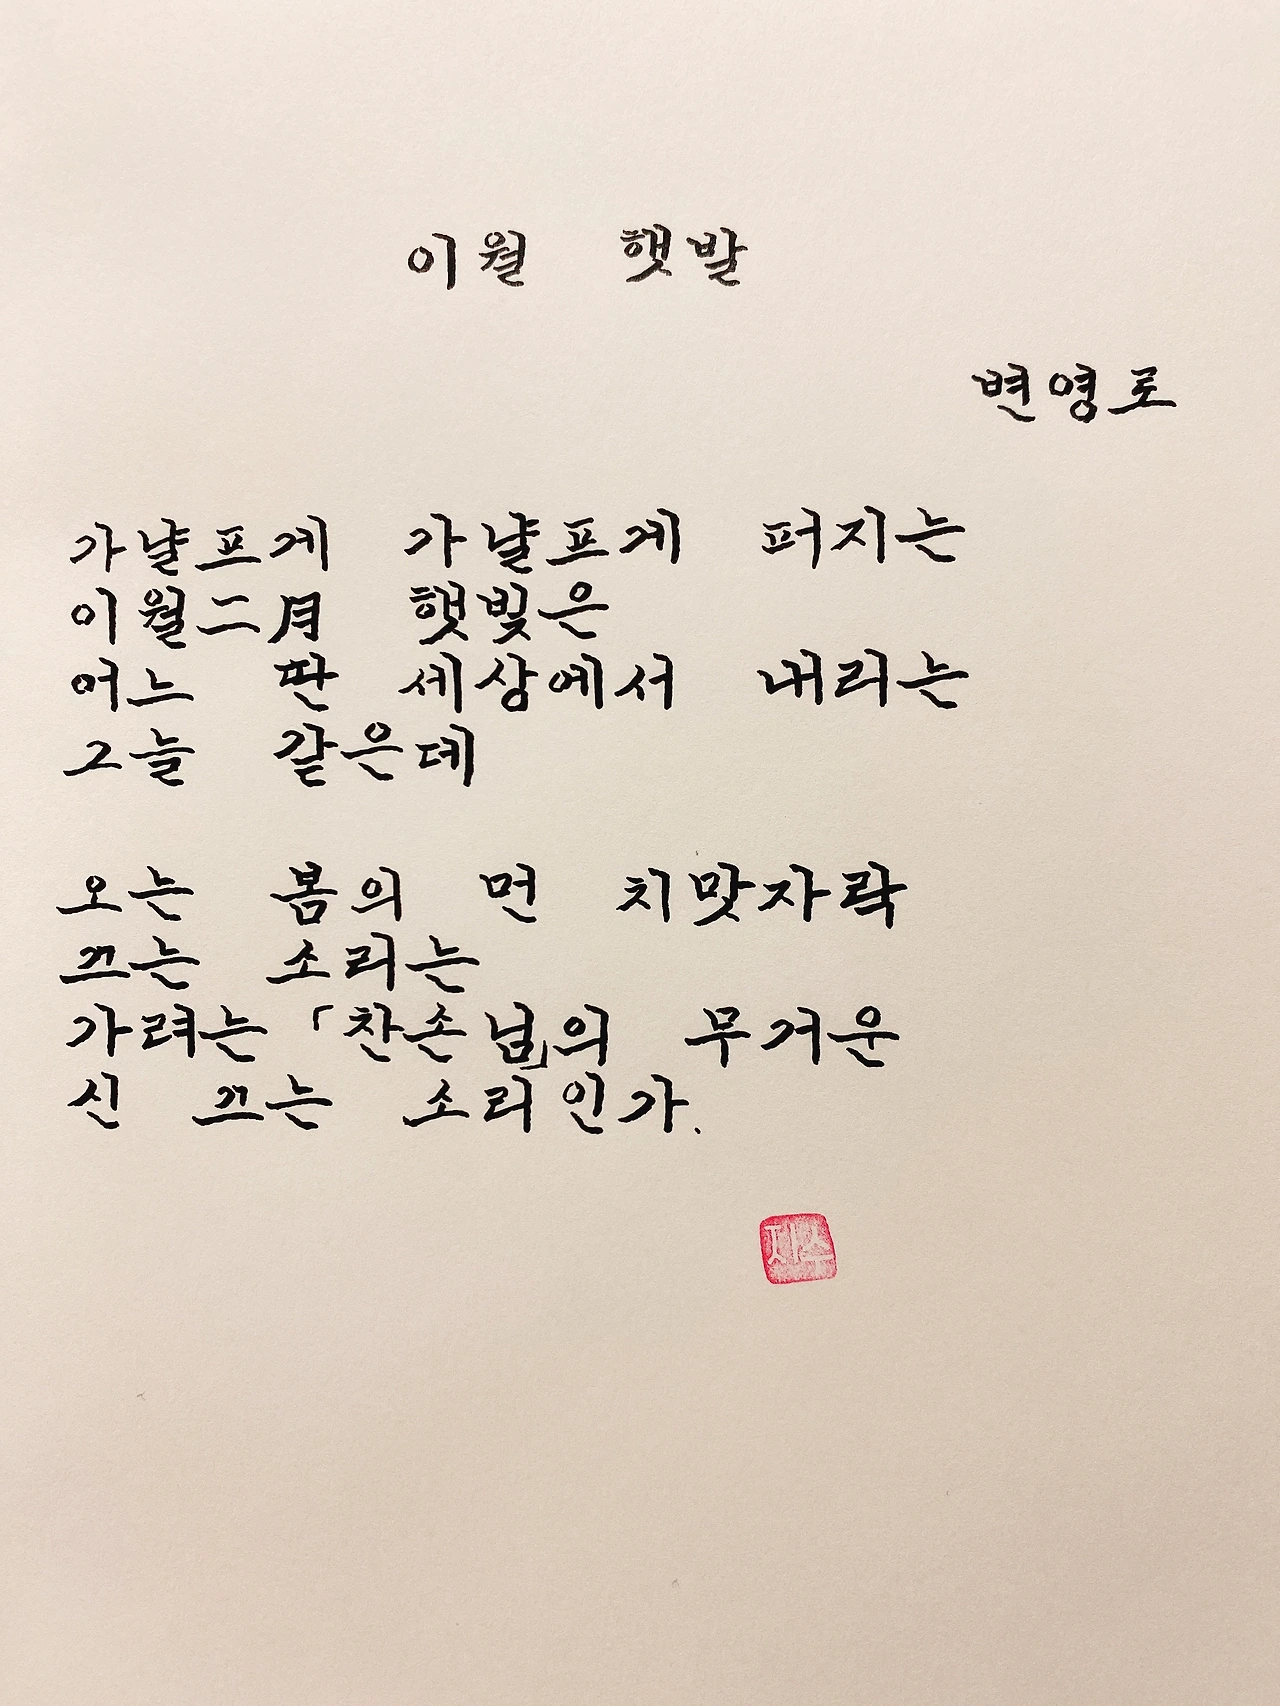 이월 햇발
변영로
가냘프게 가냘프게 퍼지는
이월二月 햇빛은
어느 딴 세상에서 내리는
그늘 같은데
오는 봄의 먼 치맛자락
끄는 소리는
가려는 「찬손님」의 무거운
신 끄는 소리인가.
자수